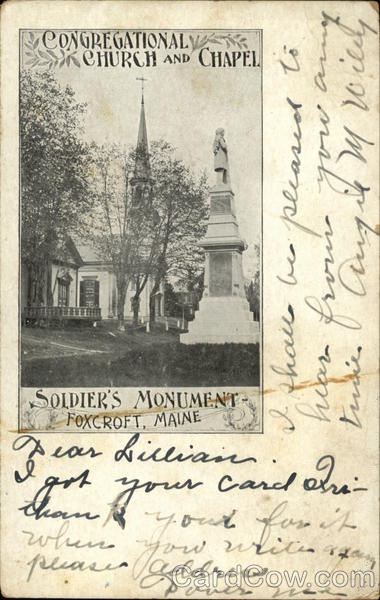 CONGREGATIONAL
CHURCH AND CHAPEL
SOLDIER'S MONUMENT-
FOXCROFT, MAINE
Dear Lillian.
I got your card Fri-
thank your for it
when you write again
please address
Dover Me
I shall be pleased to
hear from you any
time Angie M Wiley
CardCow.com